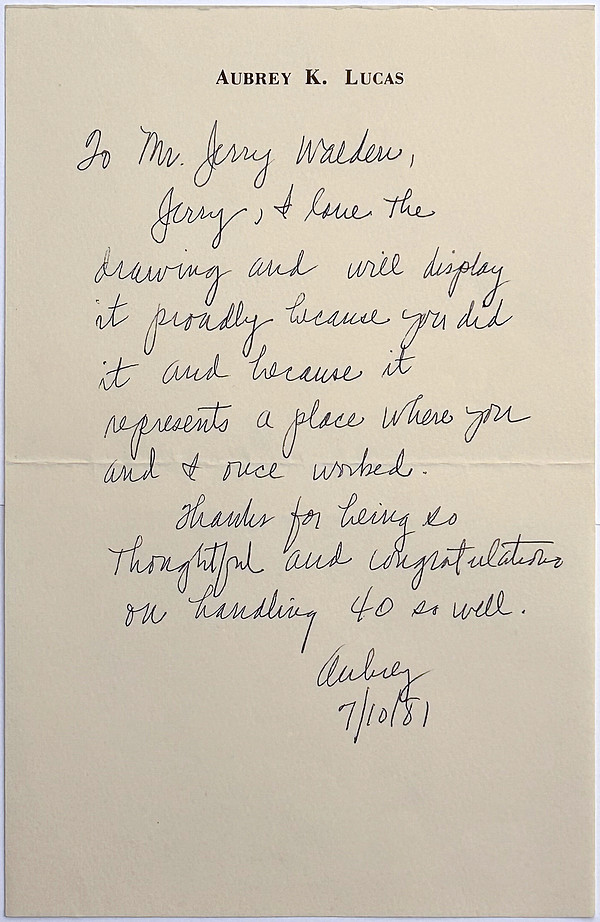 AUBREY K. LUCAS
To Mr. Jerry Walden,
Jerry, I love the
drawing and will display
it proudly because you did
it and because it
represents a place where you
and I once worked.
Thanks for being so
thoughtful and congratulations
on handling 40 so well.
Aubrey
7/10/81